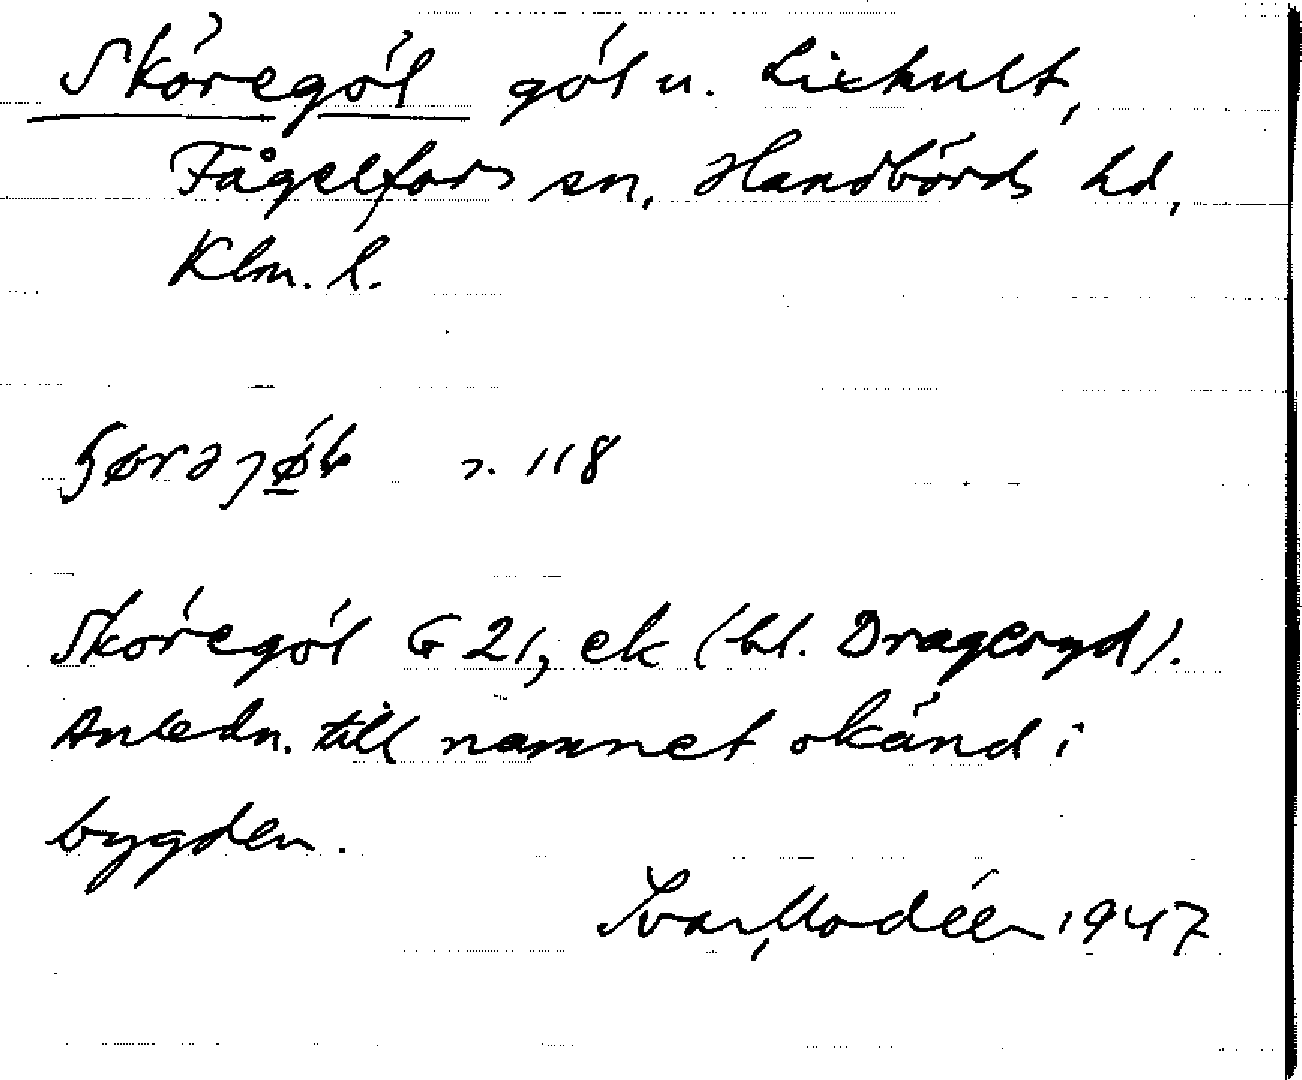 Sköregöl göl u. Lixhult,
Fågelfors sn, Handbörds hd,
Klm. l.
s. 118
Sköregöl G 21, ek (bl. Drageryd).
Anledn. till namnet okänd i
bygden.
Ivar Modéer 1947